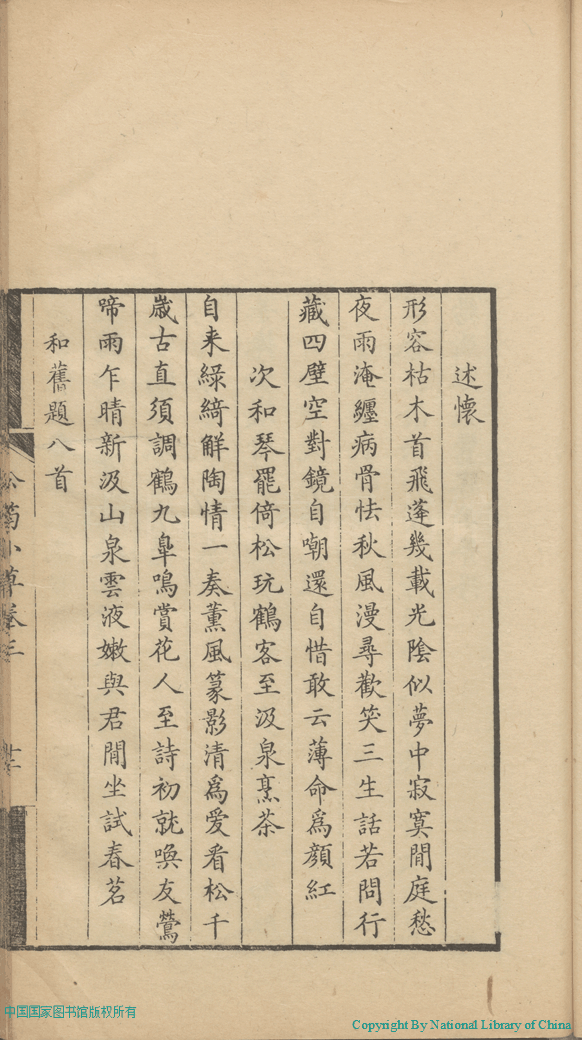 述懷
形容枯木首飛蓬幾載光陰似夢中寂寞閒庭愁
夜雨淹纏病骨怯秋風漫尋歡笑三生話若問行
藏四壁空對鏡自嘲還自惜敢云薄命爲顏紅
次和琴罷倚松玩鶴客至汲泉烹茶
自来綠綺解陶情一奏薰風篆影清爲愛看松千
歲古直須調鶴九臯鳴賞花人至詩初就喚友鶯
啼雨乍晴新汲山泉雲液嫩與君閒坐試春茗
和舊題八首
菊小草卷三
中国国家图书馆版权所有
Copyright By National Library of China